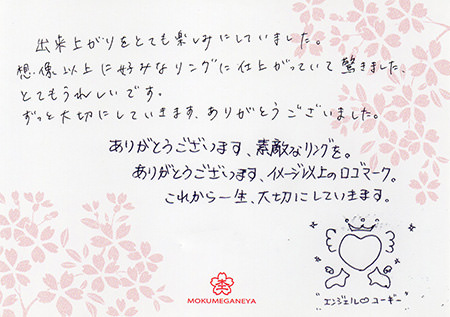 出来上がりをとても楽しみにしていました。
想像以上に好みなリングに仕上がっていて驚きました、
とてもうれしいです。
ずっと大切にしていきます、ありがとうございました。
ありがとうございます、素敵なリングを。
ありがとうございます、イメージ以上のロゴマーク。
これから一生、大切にしていきます。
"エンジェル♡コーギー"
MOKUMEGANEYA